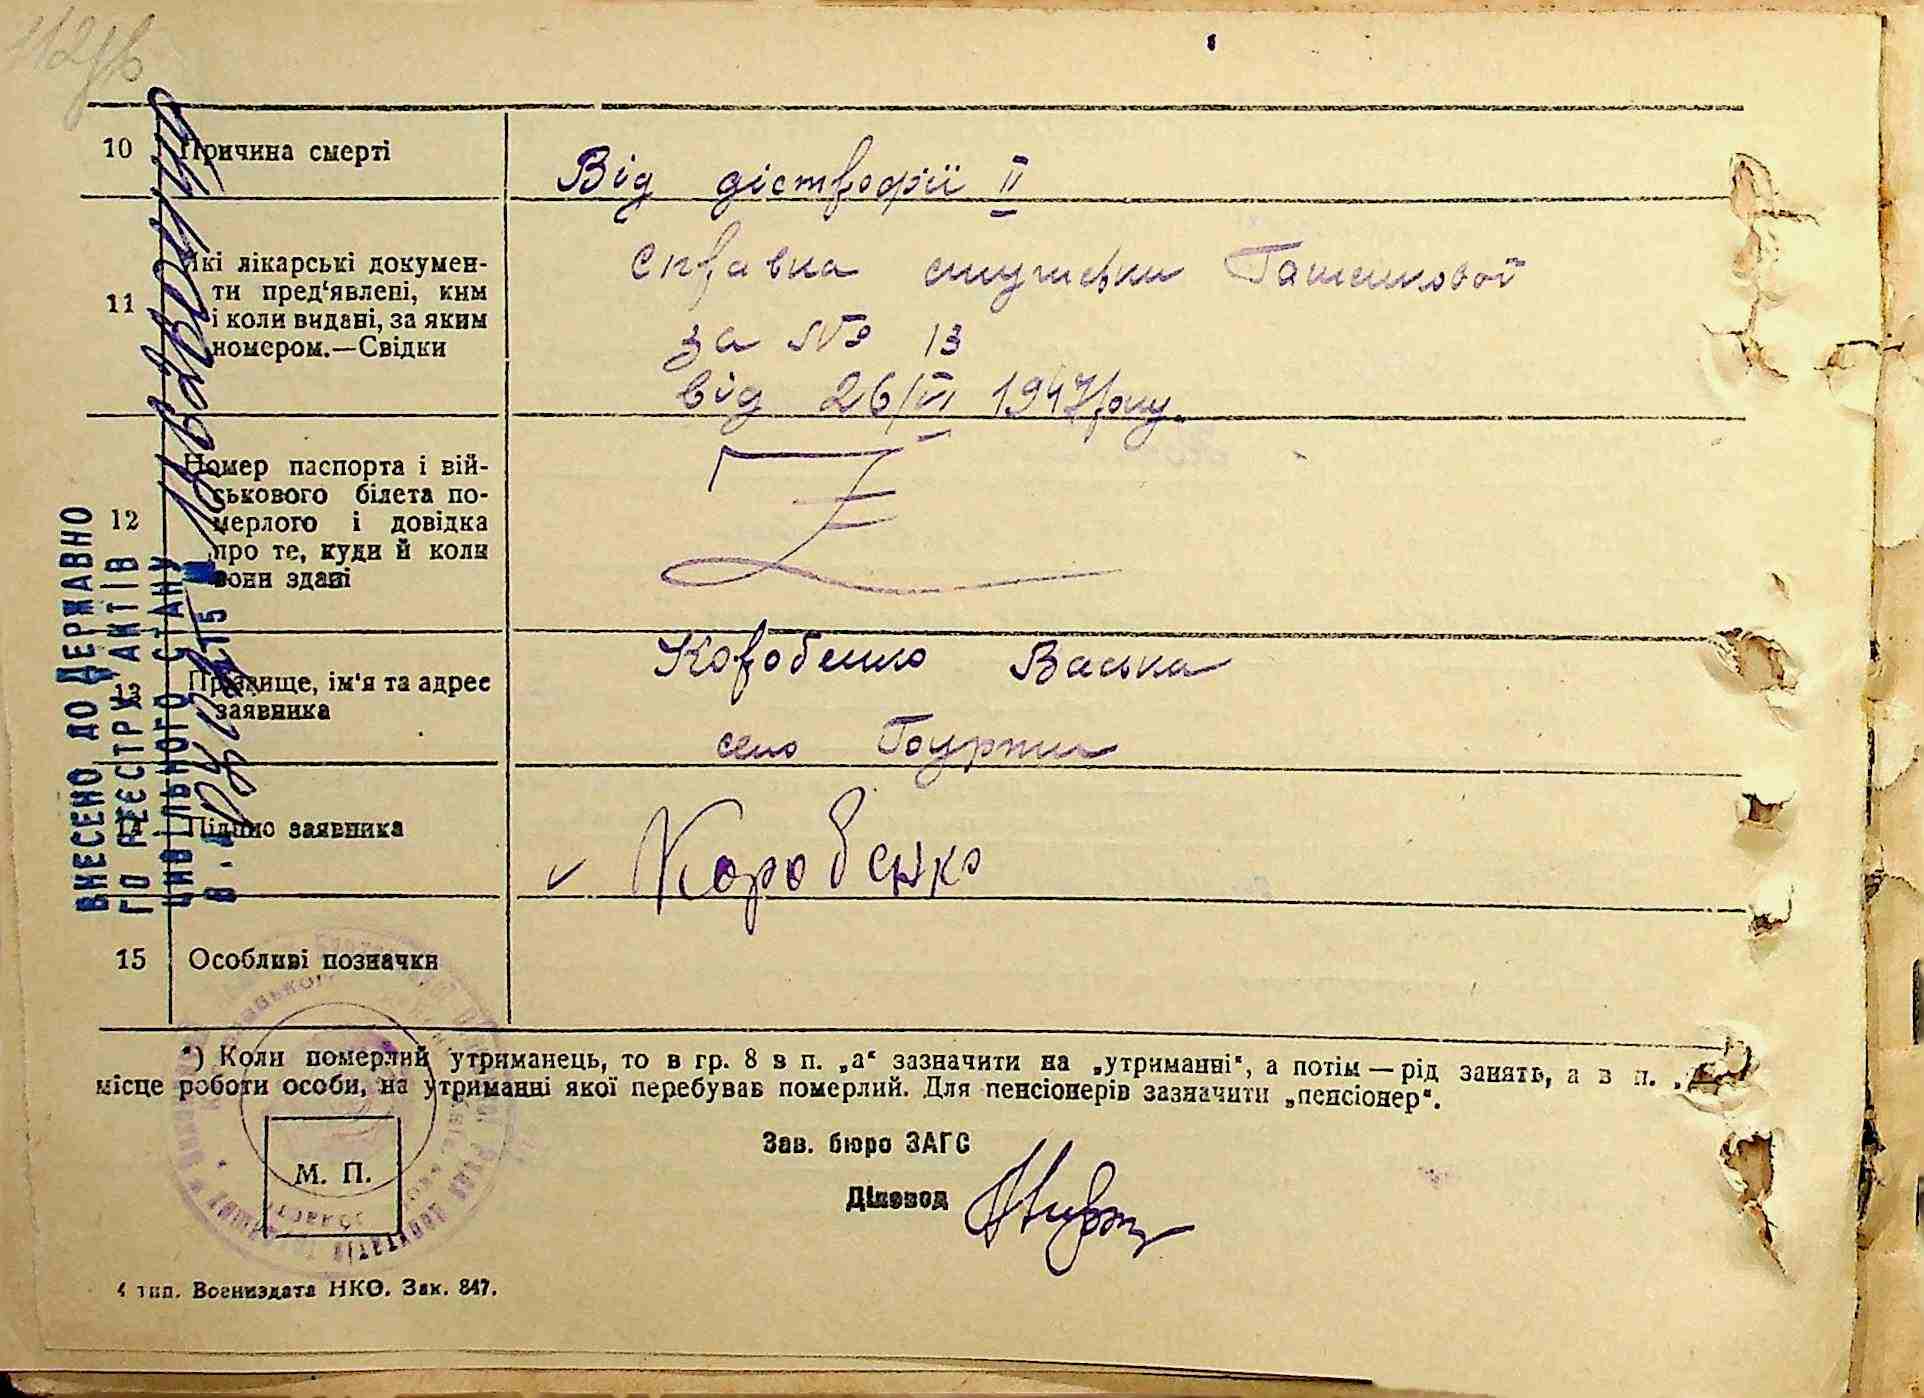 10 Причина смерті
Від дістрофії II
11 Які лікарські докумен-
ти пред'явлені, ким
і коли видані, за яким
номером.—Свідки
Справка
за № 13
від 26/VI 1947 року.
12 Номер паспорта і вій-
ськового білета по-
мерлого і довідка
про те, куди й коли
вони здані
13 Прізвище, ім'я та адрес
заявника
Коробенко Васька
село
14 Підпис заявника
Коробенко
15 Особливі позначки
ВНЕСЕНО ДО ДЕРЖАВНО
ГО РЕЄСТРУ АКТІВ
ЦИВІЛЬНОГО СТАНУ
*) Коли померлий утриманець, то в гр. 8 в п. „а“ зазначити на „утриманні“, а потім — рід занять, а в п.
місце роботи особи, на утриманні якої перебував померлий. Для пенсіонерів зазначити „пенсіонер“.
Зав. бюро ЗАГС
Діловод
М. П.
4 тип. Воениздата НКО. Зак. 847.